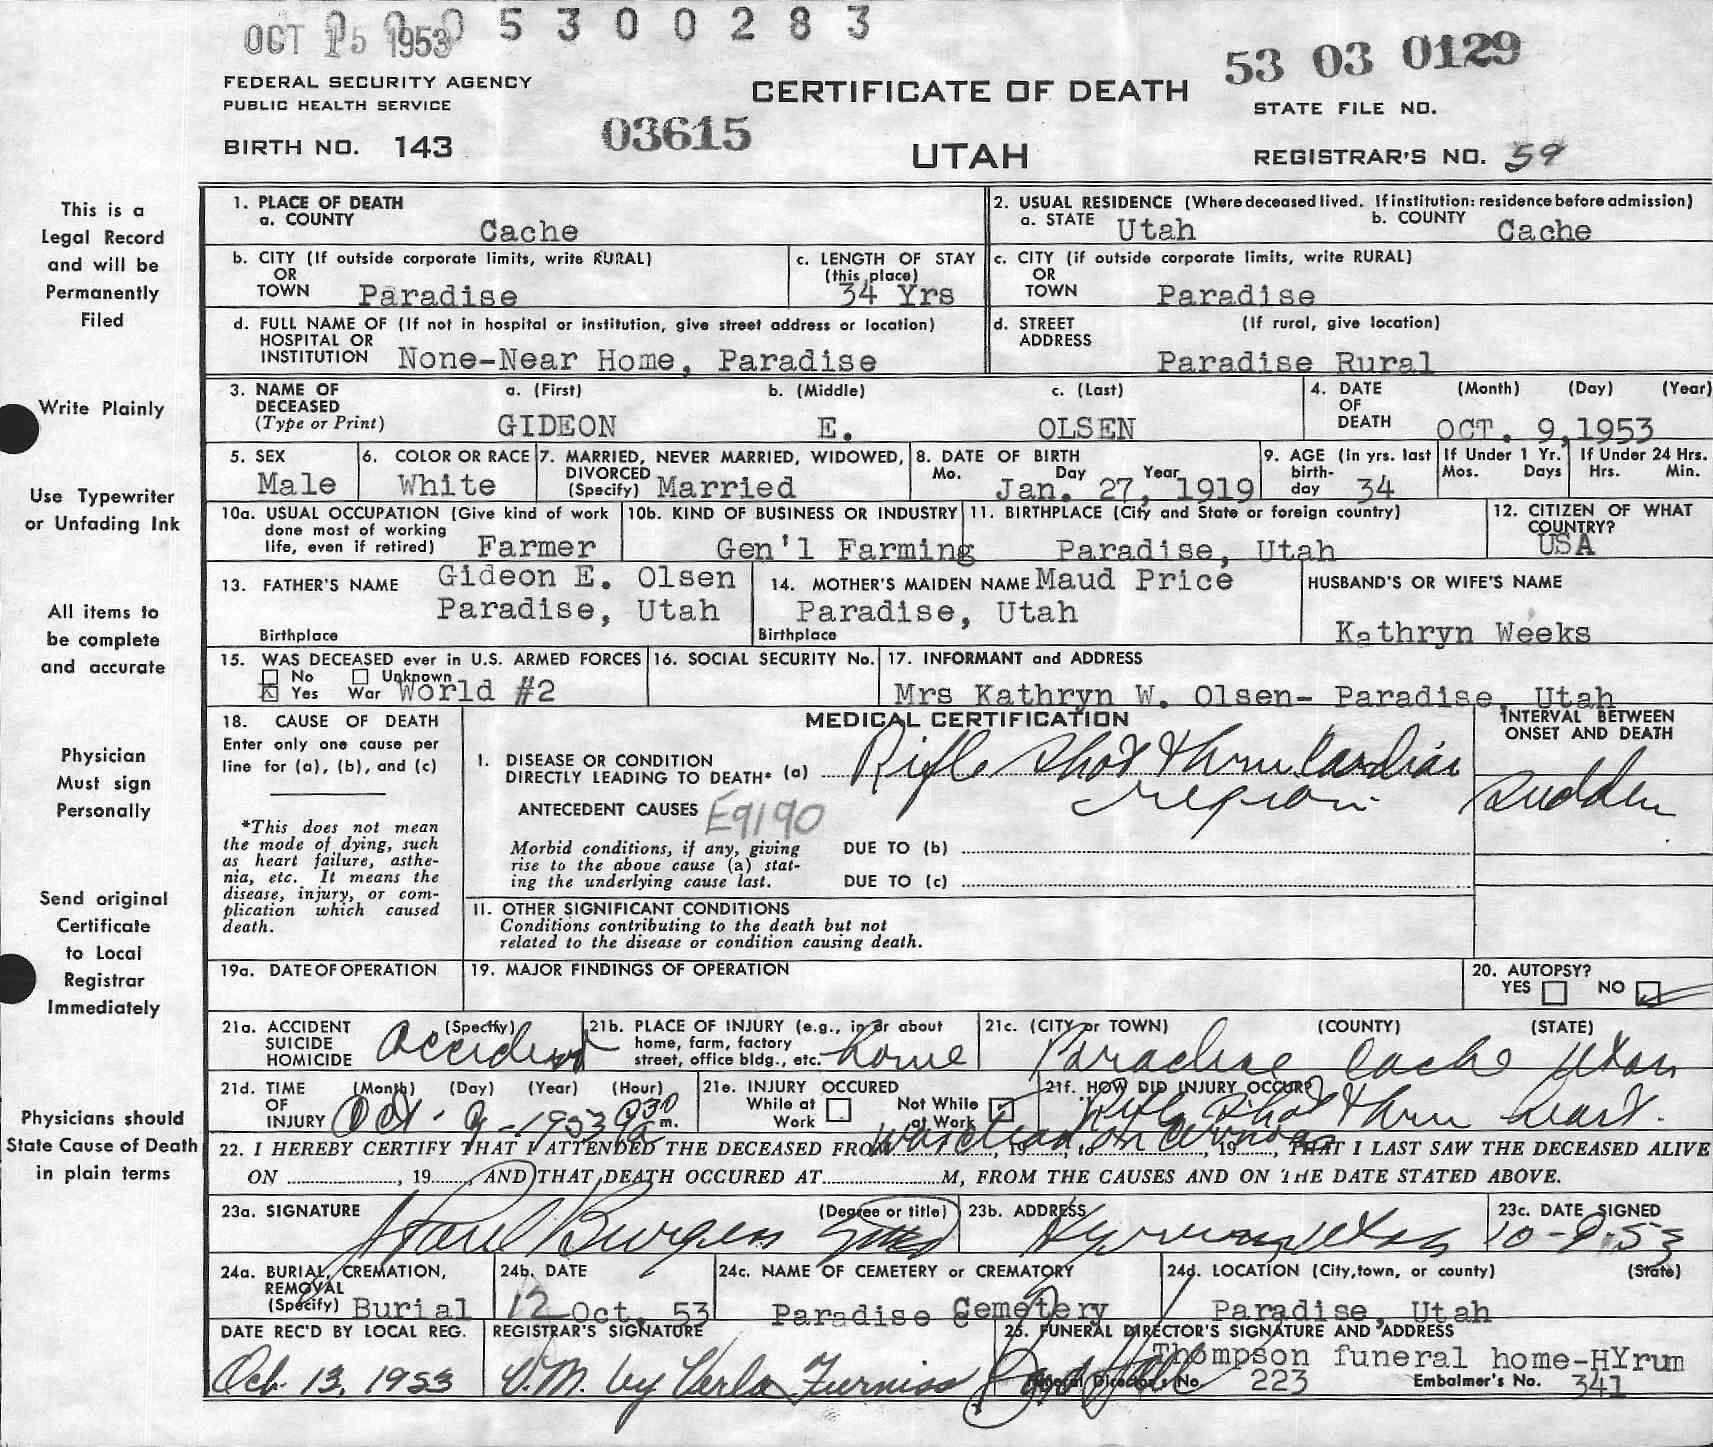 OCT 15 1953 0 5 3 0 0 2 8 3
53 03 0129
FEDERAL SECURITY AGENCY
PUBLIC HEALTH SERVICE
CERTIFICATE OF DEATH
STATE FILE NO.
BIRTH NO. 143
03615
UTAH
REGISTRAR'S NO. 59
This is a
Legal Record
and will be
Permanently
Filed
Write Plainly
Use Typewriter
or Unfading Ink
All items to
be complete
and accurate
Physician
Must sign
Personally
Send original
Certificate
to Local
Registrar
Immediately
Physicians should
State Cause of Death
in plain terms
1. PLACE OF DEATH
a. COUNTY Cache
2. USUAL RESIDENCE (Where deceased lived. If institution: residence before admission)
a. STATE Utah b. COUNTY Cache
b. CITY (If outside corporate limits, write RURAL)
OR
TOWN Paradise
c. LENGTH OF STAY
(this place)
34 Yrs
c. CITY (if outside corporate limits, write RURAL)
OR
TOWN Paradise
d. FULL NAME OF (If not in hospital or institution, give street address or location)
HOSPITAL OR
INSTITUTION None-Near Home, Paradise
d. STREET (If rural, give location)
ADDRESS
Paradise Rural
3. NAME OF a. (First) b. (Middle) c. (Last)
DECEASED
(Type or Print) GIDEON E. OLSEN
4. DATE (Month) (Day) (Year)
OF
DEATH OCT. 9, 1953
5. SEX
Male
6. COLOR OR RACE
White
7. MARRIED, NEVER MARRIED, WIDOWED,
DIVORCED
(Specify) Married
8. DATE OF BIRTH
Mo. Day Year
Jan. 27, 1919
9. AGE (in yrs. last
birth-
day 34
If Under 1 Yr.
Mos. Days
If Under 24 Hrs.
Hrs. Min.
10a. USUAL OCCUPATION (Give kind of work
done most of working
life, even if retired) Farmer
10b. KIND OF BUSINESS OR INDUSTRY
Gen'l Farming
11. BIRTHPLACE (City and State or foreign country)
Paradise, Utah
12. CITIZEN OF WHAT
COUNTRY?
USA
13. FATHER'S NAME Gideon E. Olsen
Paradise, Utah
Birthplace
14. MOTHER'S MAIDEN NAME Maud Price
Paradise, Utah
Birthplace
HUSBAND'S OR WIFE'S NAME
Kathryn Weeks
15. WAS DECEASED ever in U.S. ARMED FORCES
No Unknown
Yes War World #2
16. SOCIAL SECURITY No.
17. INFORMANT and ADDRESS
Mrs Kathryn W. Olsen- Paradise, Utah
18. CAUSE OF DEATH
Enter only one cause per
line for (a), (b), and (c)
*This does not mean
the mode of dying, such
as heart failure, asthe-
nia, etc. It means the
disease, injury, or com-
plication which caused
death.
MEDICAL CERTIFICATION
INTERVAL BETWEEN
ONSET AND DEATH
1. DISEASE OR CONDITION
DIRECTLY LEADING TO DEATH* (a) Rifle shot thru Cardiac
region.
Sudden
ANTECEDENT CAUSES E9190
Morbid conditions, if any, giving
rise to the above cause (a) stat-
ing the underlying cause last.
DUE TO (b)
DUE TO (c)
11. OTHER SIGNIFICANT CONDITIONS
Conditions contributing to the death but not
related to the disease or condition causing death.
19a. DATE OF OPERATION
19. MAJOR FINDINGS OF OPERATION
20. AUTOPSY?
YES NO
21a. ACCIDENT (Specify)
SUICIDE
HOMICIDE Accident
21b. PLACE OF INJURY (e.g., in or about
home, farm, factory
street, office bldg., etc. home
21c. (CITY or TOWN) (COUNTY) (STATE)
Paradise Cache Utah
21d. TIME (Month) (Day) (Year) (Hour)
OF
INJURY Oct - 9 - 1953 930 a m.
21e. INJURY OCCURED
While at Not While
Work at Work
21f. HOW DID INJURY OCCUR?
Rifle Shot thru heart.
22. I HEREBY CERTIFY THAT I ATTENDED THE DECEASED FROM was dead on arrival, 19, to, 19, THAT I LAST SAW THE DECEASED ALIVE
ON, 19, AND THAT DEATH OCCURED AT M, FROM THE CAUSES AND ON THE DATE STATED ABOVE.
23a. SIGNATURE (Degree or title)
Burgess
23b. ADDRESS
Hyrum Utah
23c. DATE SIGNED
10-9-53
24a. BURIAL, CREMATION,
REMOVAL
(Specify) Burial
24b. DATE
12 Oct, 53
24c. NAME OF CEMETERY or CREMATORY
Paradise Cemetery
24d. LOCATION (City, town, or county) (State)
Paradise, Utah
DATE REC'D BY LOCAL REG.
Oct. 13, 1953
REGISTRAR'S SIGNATURE
V.M. by Verla Furniss
25. FUNERAL DIRECTOR'S SIGNATURE AND ADDRESS
Thompson funeral home-HYrum
Funeral Director's No. 223 Embalmer's No. 341